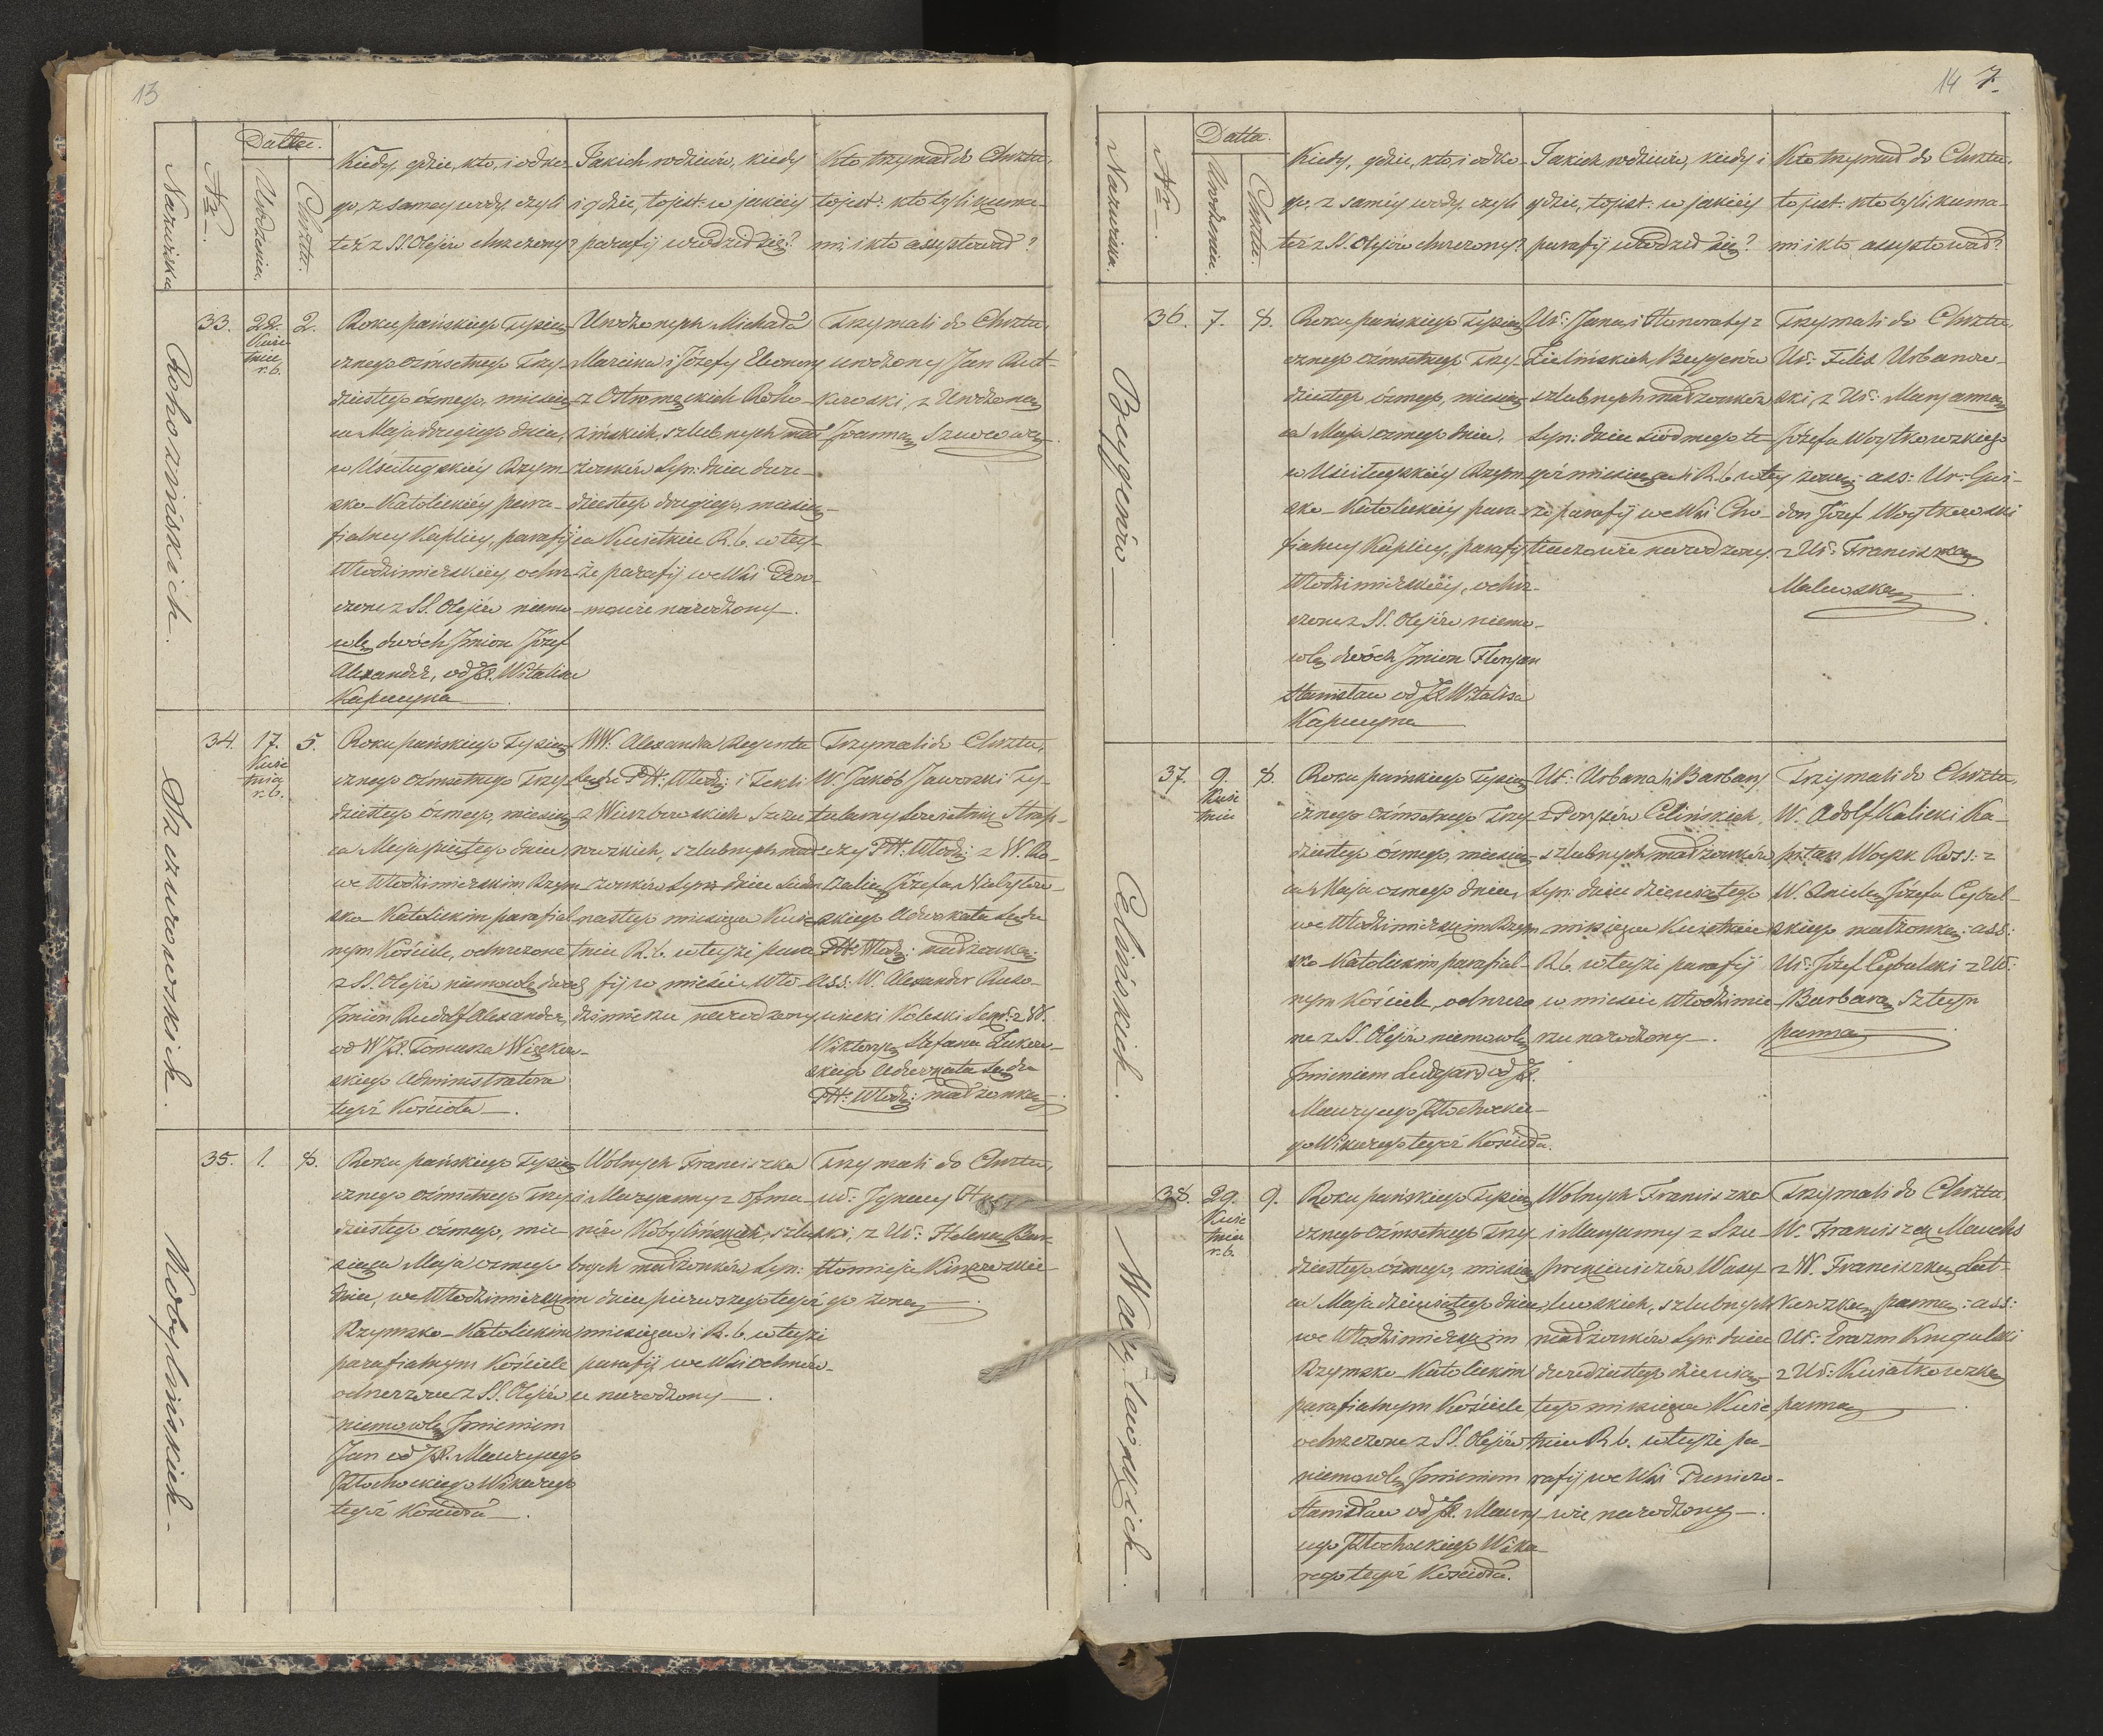 13
Datta.
Nazwiska
No
Urodzenia.
Chrztu.
Kiedy, gdzie, kto, i odko-
go, z samey wody, czyli
też z SS. Olejów chrzczony?
Jakich rodziców, kiedy
i gdzie, to jest: w jakiéy
parafij urodził się?
Kto trzymał do Chrztu,
to jest: kto byli kuma-
mi i kto assystował?
Rohozińskich.
33.
22.
Kwie
tnia
r. b.
2.
Roku pańskiego Tysiąc
cznego ośmsetnego Trzy-
dziestego ósmego, miesią-
ca Maja drugiego dnia,
w Uściługskiéy Rzym
sko-Katolickiéy para-
fialney Kaplicy, parafij
Włodzimierskiéy ochrz-
czone z SS. Olejów niemo-
wlę dwóch Imion Józef
Alexander, od JX. Witalisa
Kapucyna
Urodzonych Michała
Marcina i Józefy Eleonory
z Ostromęckich Roho-
zińskich, szlubnych mał
żonków Syn: dnia dwu-
dziestego drugiego, miesią-
ca Kwietnia R. b. w tey-
że parafij we Wsi
narodzony.
Trzymali do Chrztu,
urodzony Jan Rut-
kowski, z Urodzoną
Joanną
Szczurowskich.
34.
17.
Kwie
tnia
r. b.
5.
Roku pańskiego Tysiąc
cznego ośmsetnego Trzy-
dziestego ósmego, miesią-
ca Maja piątego dnia,
we Włodzimierskim Rzym-
sko-Katolickim parafial-
nym Kościele, ochrzczone
z SS. Olejów niemowlę dwóch
Imion Rudolf Alexander,
od WJX. Tomasza Więckow-
skiego Administratora
tegoż Kościoła.
WW. Alexandra Regenta
Sądu PH: Włodz: i Tekli
z Wierzbowskich Szczu
rowskich, szlubnych mał-
żonków Syn dnia Siedm
nastego miesiąca Kwie-
tnia R. b. w teyże para
fij w mieście Wło-
dzimierzu narodzony
Trzymali do Chrztu,
W. Jakób Jaworski Ty-
tularny Sowietnik
PH: Włodz: z W. Ro-
zalią Józefa
skiego Adwokata Sądu
PH: Włodz: małżonką:
ass: W. Alexander
z W.
Wiktoryą Stefana Żukow-
skiego Adwokata Sądu
PH: Włodz: małżonką.
Kobylińskich.
35.
1.
8.
Roku pańskiego Tysiąc
cznego ośmsetnego Trzy
dziestego ósmego, mie-
siąca Maja osmego
dnia, we Włodzimierskim
Rzymsko-Katolickim
parafialnym Kościele
ochrzczone z SS. Olejów
niemowlę Imieniem
Jan od JX. Maurycego
Płochockiego Wikarego
tegoż Kościoła.
Wolnych Franciszka
i Maryanny z
Kobylińskich, szlu-
bnych małżonków Syn:
dnia pierwszego tegoż
miesiąca i R. b. w teyże
parafij, we Wsi Ochnów-
ce narodzony.
Trzymali do Chrztu,
Ur: Ignacy
ski, z Ur: Heleną Bar-
tłomieja
go żoną
14 7.
Datta.
Nazwiska.
No
Urodzenia.
Chrztu.
Kiedy, gdzie, kto, i odko-
go, z saméy wody, czyli
też z SS. Olejów chrzczony?
Jakich rodziców, kiedy i
gdzie, to jest: w jakiéy
parafij urodził się?
Kto trzymał do Chrztu,
to jest: kto byli kuma-
mi i kto assystował?
Buygenów
36.
7.
8.
Roku pańskiego Tysiąc
cznego ośmsetnego Trzy-
dziestego ósmego, miesią-
ca Maja, osmego dnia,
w Uściługskiéy Rzym
sko-Katolickiéy para-
fialney Kaplicy, parafij
Włodzimierskiéy, ochrz-
czone z SS. Olejów niemo-
wlę dwóch Imion Floryan
Stanisław od JX. Witalisa
Kapucyna
Ur: Jana i Honoraty z
Zielińskich Buygenów
szlubnych małżonków
Syn: dnia siódmego te-
goż miesiąca i R. b. w tey
że parafij we Wsi Cho-
narodzony.
Trzymali do Chrztu,
Ur: Felix Urbanow-
ski, z Ur: Maryanną
Józefa Woytkowskiego
żoną: ass: Ur: Gwi-
don Józef Woytkowski
z Ur: Franciszką
Malewską
Celińskich.
37.
9.
Kwie
tnia
8.
Roku pańskiego Tysiąc
cznego ośmsetnego Trzy
dziestego ósmego, miesią-
ca Maja osmego dnia,
we Włodzimierskim Rzym
sko Katolickim parafial-
nym Kościele, ochrzczo
ne z SS. Olejów niemowlę
Imieniem Ludgard od JX.
Maurycego Płochockie-
go Wikarego tegoż Kościoła.
Ur: Urbana i Barbary
z Celińskich,
szlubnych małżonków
Syn: dnia dziewiątego
miesiąca Kwietnia
R. b. w teyże parafij
w mieście Włodzimie-
rzu narodzony.
Trzymali do Chrztu,
W. Adolf Kalicki Ka-
pitan Woysk Ross: z
W. Anielą Józefa Cybul-
skiego małżonką: ass:
Ur: Józef Cybulski z Ur:
Barbarą Szteyn
panną
Wasylewskich.
38.
29.
Kwie
tnia
r. b.
9.
Roku pańskiego Tysiąc
cznego ośmsetnego Trzy
dziestego ósmego, miesią
ca Maja dziewiątego dnia,
we Włodzimierskim
Rzymsko-Katolickim
parafialnym Kościele
ochrzczone z SS. Olejów
niemowlę Imieniem
Stanisław od JX. Maury-
cego Płochockiego Wika-
rego tegoż Kościoła.
Wolnych Franciszka
i Maryanny z Szu-
Wasy-
lewskich, szlubnych
małżonków Syn: dnia
dwudziestego dziewią-
tego miesiąca Kwie-
tnia R. b. w teyże pa-
rafij we Wsi
wie narodzony.
Trzymali do Chrztu,
W. Franciszek
z W. Franciszką Rut-
kowską panną: ass:
Ur: Erazm
z Ur: Kwiatkowską
panną